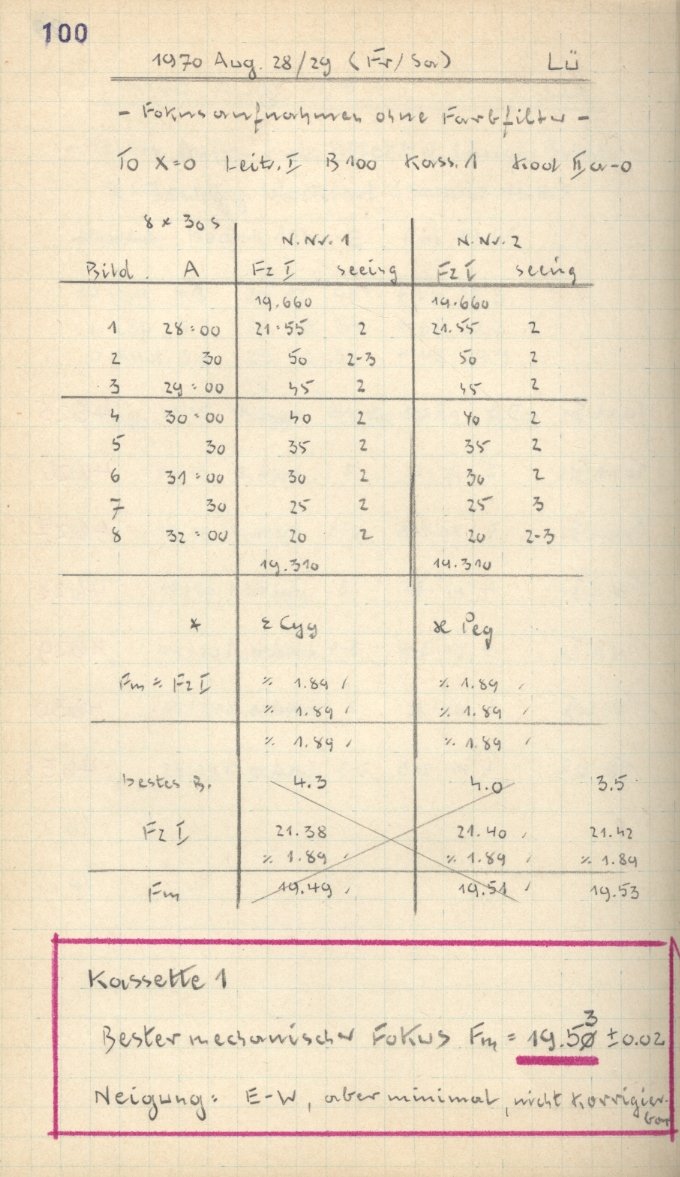 100
1970 Aug. 28/29 (Fr/Sa) Lü
- Fokusaufnahmen ohne Farbfilter -
To X=0 Leitr. I B 100 Kass. 1 Kod IIa-0
8 x 30s N. Nr. 1 N. Nr. 2
Bild. A Fz I seeing Fz I seeing
19.660 19.660
1 28:00 21.55 2 21.55 2
2 30 50 2-3 50 2
3 29:00 45 2 45 2
4 30:00 40 2 40 2
5 30 35 2 35 2
6 31:00 30 2 30 2
7 30 25 2 25 3
8 32:00 20 2 20 2-3
19.310 19.310
* ε Cyg ϰ Peg
Fm = Fz I ./. 1.89 ./. 1.89
./. 1.89 ./. 1.89
./. 1.89 ./. 1.89
bestes B. 4.3 4.0 3.5
Fz I 21.38 21.40 21.42
./. 1.89 ./. 1.89 ./. 1.89
Fm 19.49 19.51 19.53
Kassette 1
Bester mechanischer Fokus Fm = 19.53 ±0.02
Neigung: E-W, aber minimal, nicht korrigier-
bar